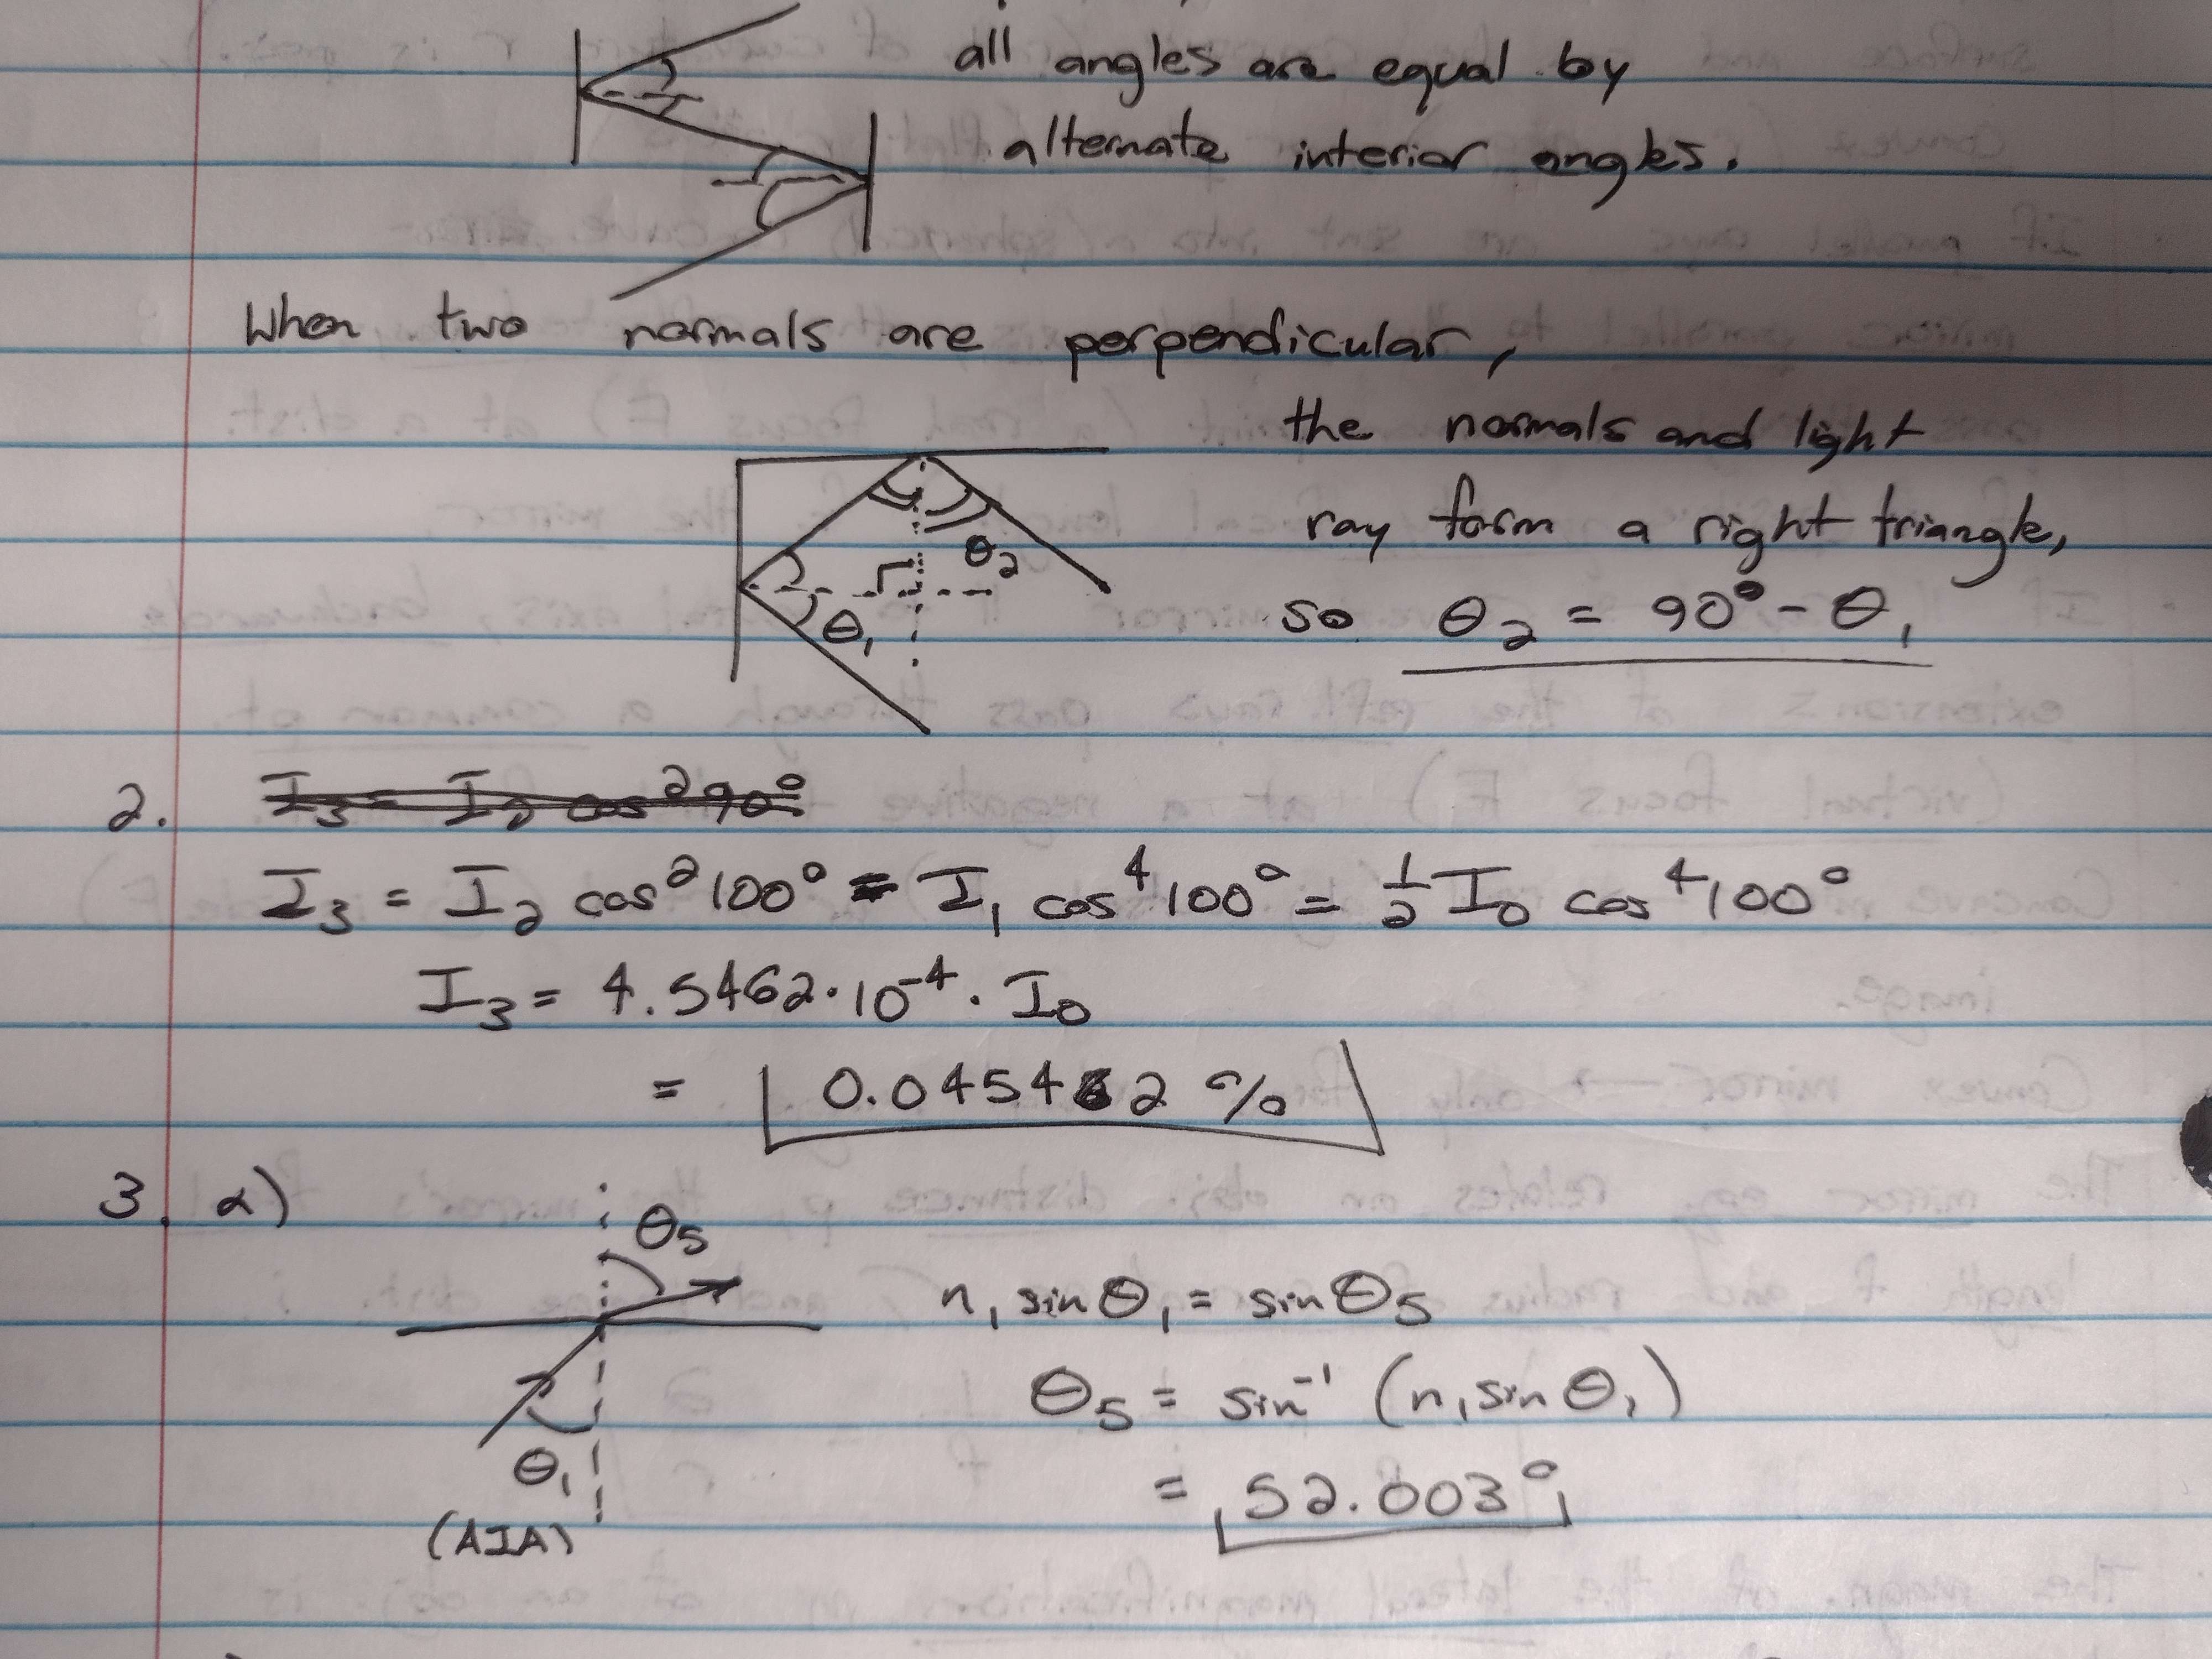 all angles are equal by
alternate interior angles.
When two normals are perpendicular,
the normals and light
ray form a right triangle,
θ₂
θ₁
so θ₂ = 90° - θ₁
2. I₃ = I₂ cos²90°
I₃ = I₂ cos²100° = I₁ cos⁴100° = ½ I₀ cos⁴100°
I₃ = 4.5462·10⁻⁴·I₀
= 0.045462 %
3. a)
θ₅
n₁ sinθ₁ = sinθ₅
θ₅ = sin⁻¹ (n₁sinθ₁)
θ₁
= 52.003°
(AIA)